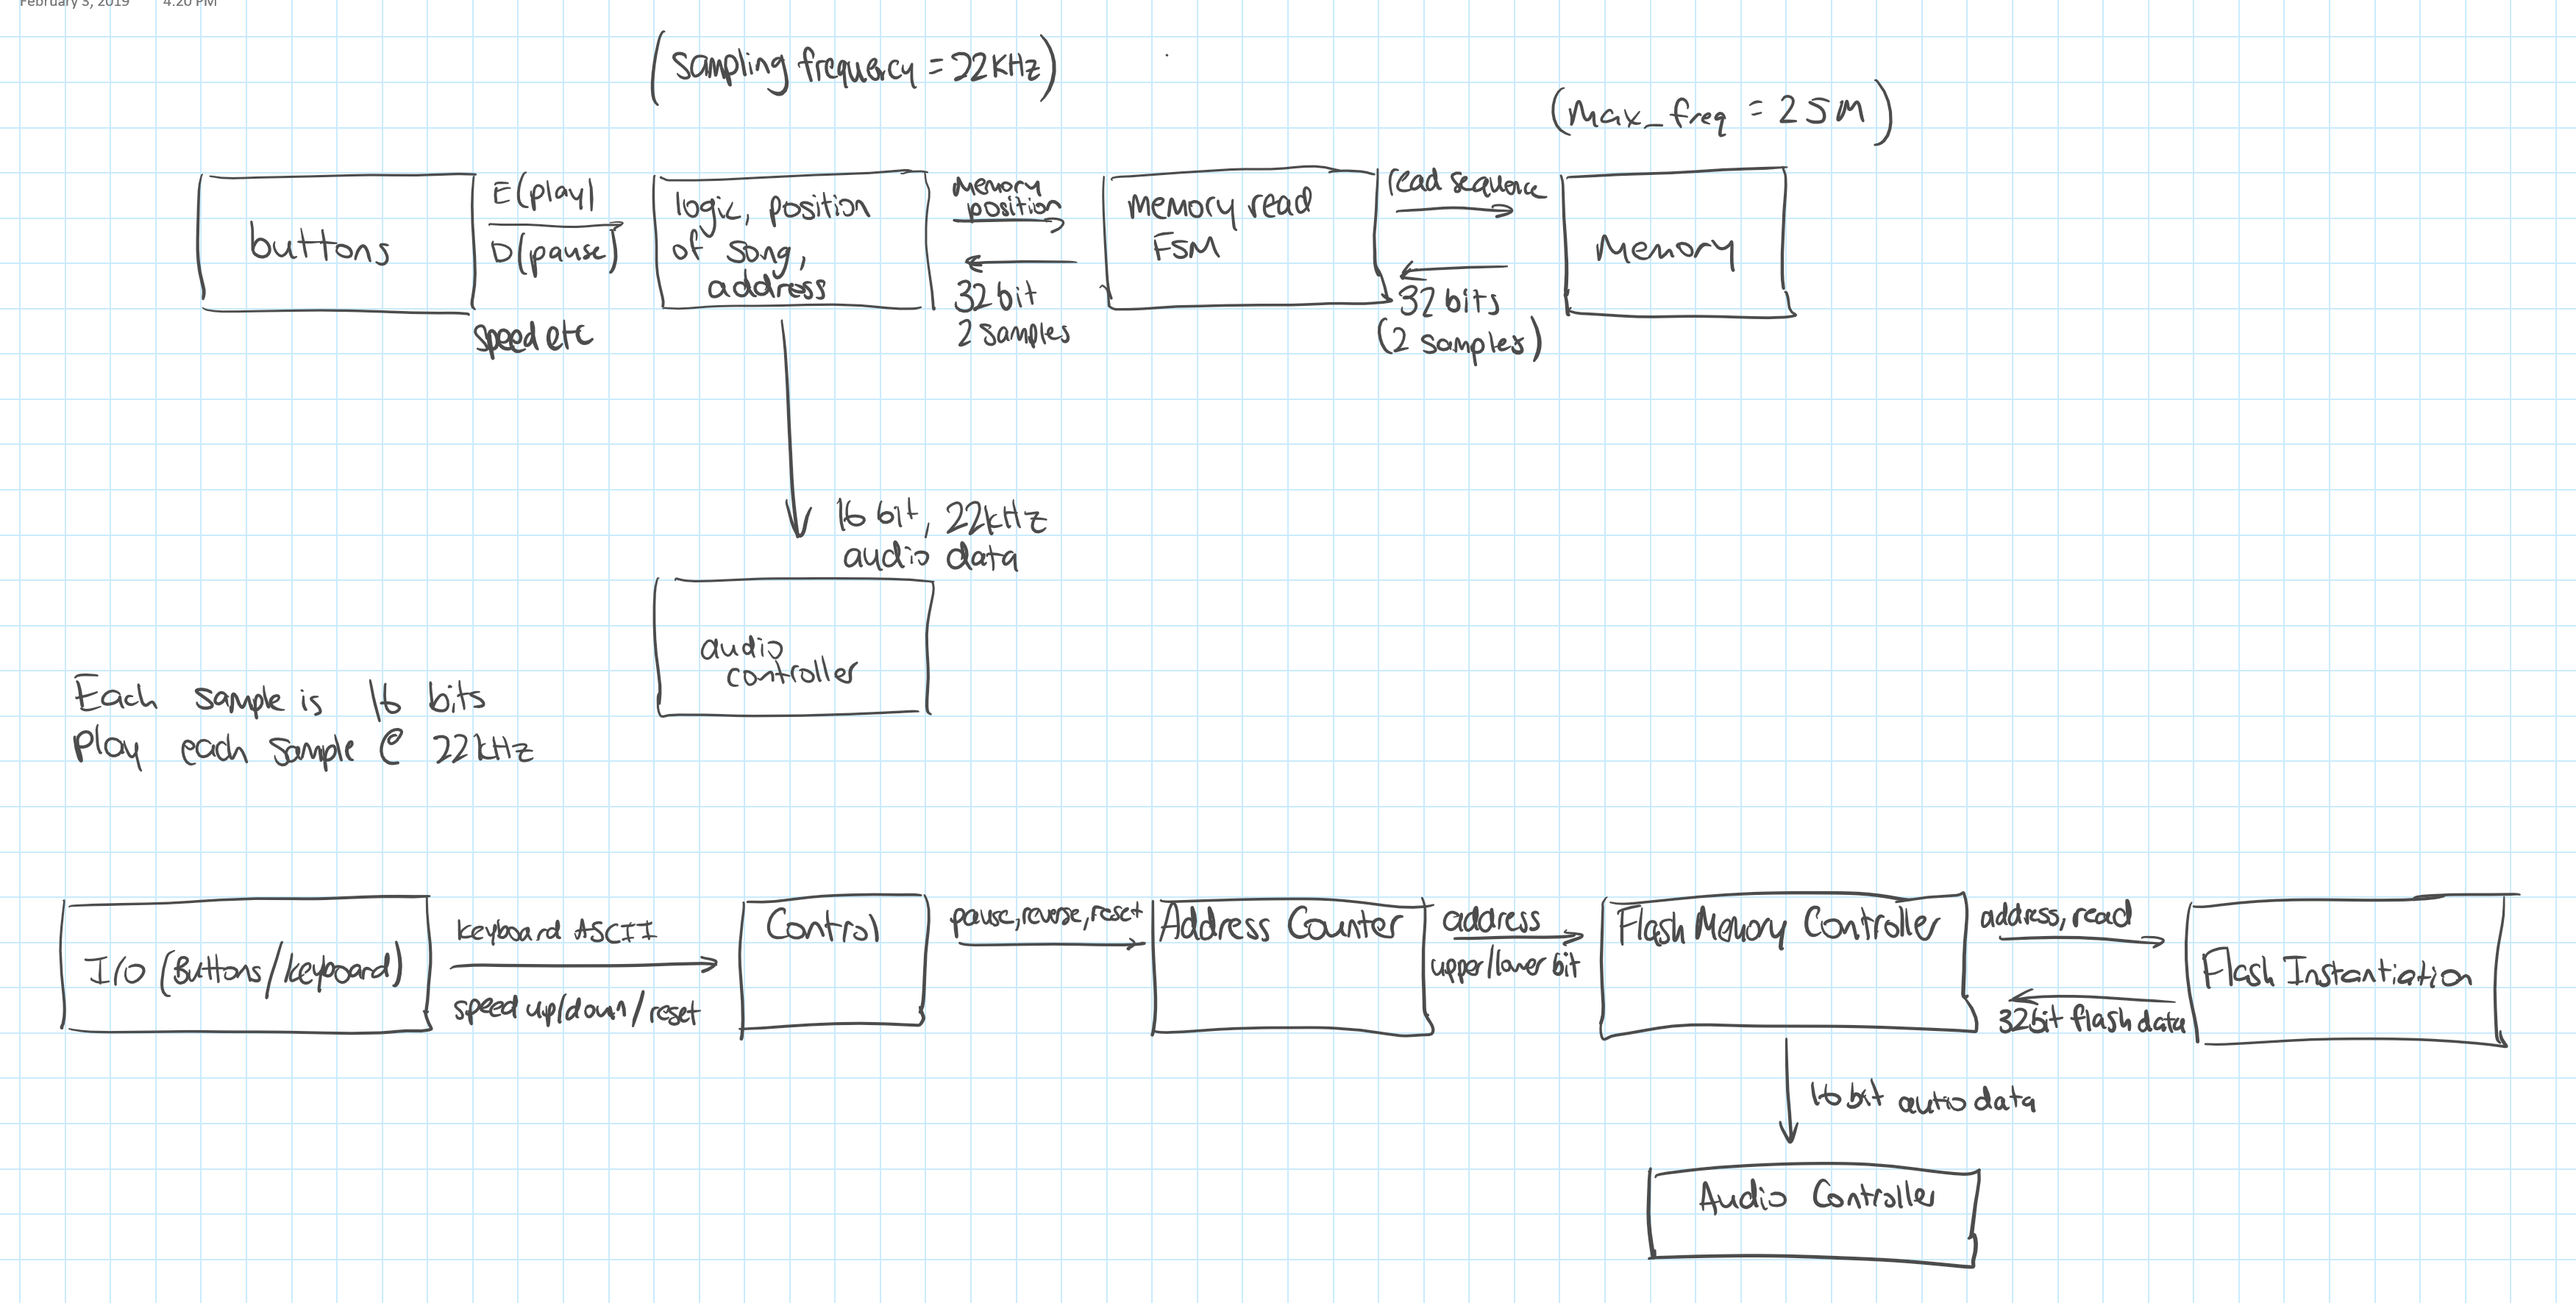 February 3, 2019 4:20 PM
(Sampling frequency = 22KHz)
(Max_freq = 25M)
buttons
E(play)
D(pause)
speed etc
logic, position
of song,
address
Memory
position
32 bit
2 samples
Memory read
FSM
read sequence
32 bits
(2 samples)
Memory
16 bit, 22kHz
audio data
audio
controller
Each sample is 16 bits
Play each sample @ 22kHz
I/O (Buttons/keyboard)
keyboard ASCII
speed up/down/reset
Control
pause, reverse, reset
Address Counter
address
upper/lower bit
Flash Memory Controller
address, read
32bit flash data
Flash Instantiation
16 bit autio data
Audio Controller